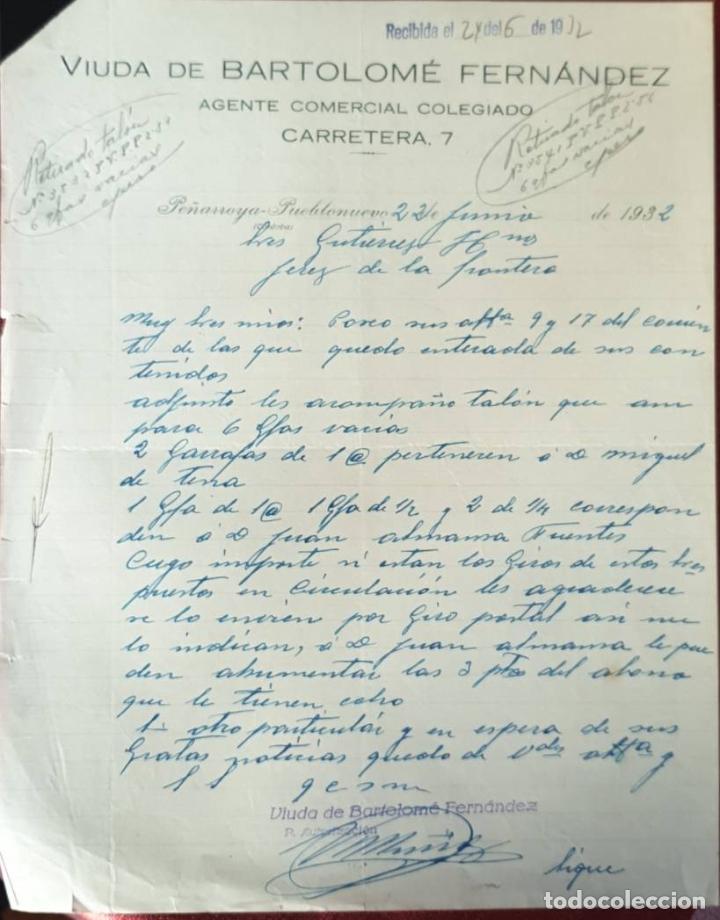 Recibida el 24 del 6 de 1932
VIUDA DE BARTOLOMÉ FERNÁNDEZ
AGENTE COMERCIAL COLEGIADO
CARRETERA, 7
Retirado talón
6 gfas vacias
Retirado talón
6 gfas vacias
Peñarroya-Pueblonuevo 22 de Junio de 1932
(Córdoba)
Sres Gutiérrez Hnos
Jerez de la frontera
Muy Sres mios: Poseo sus atta 9 y 17 del corrien
te de las que quedo enterada de sus con
tenidos
adjunto les acompaño talón que am
para 6 Gfas vacias
2 Garrafas de 1@ pertenecen á D miguel
de tena
1 Gfa de 1@ 1 Gfa de 1/2 y 2 de 1/4 correspon
den á D Juan almansa Fuentes
Cuyo importe si estan los Giros de estos Sres
puestos en Circulación les agradecere
se lo envien por Giro postal asi me
lo indican, á D Juan almansa le pue
den ahumentar las 3 pts del abono
que le tienen echo
S otro particular y en espera de sus
Gratas noticias quedo de Vdes atta y
S S q e s m
Viuda de Bartolomé Fernández
P. Autorización
Sigue
todocoleccion